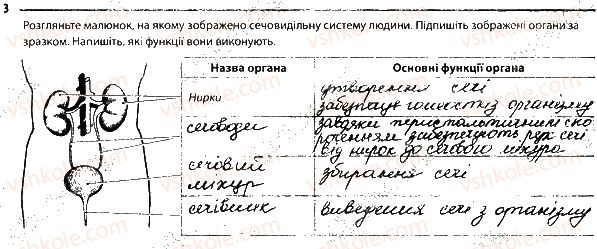 3
Розгляньте малюнок, на якому зображено сечовидільну систему людини. Підпишіть зображені органи за
зразком. Напишіть, які функції вони виконують.
Назва органа Основні функції органа
Нирки утворення сечі
забезпечує гомеостаз організму
сечоводи завдяки перистальтичним ско
роченням забезпечують рух сечі
від нирок до сечового міхура
сечовий
міхур збирання сечі
сечівник виведення сечі з організму